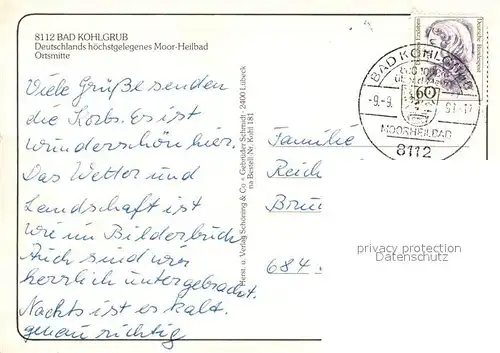 8112 BAD KOHLGRUB
Deutschlands höchstgelegenes Moor-Heilbad
Ortsmitte
Viele Grüße senden
die Korbs. Es ist
wunderschön hier.
Das Wetter und
Landschaft ist
wie im Bilderbuch
Auch sind wir
herrlich untergebracht.
Nachts ist es kalt.
genau richtig
Herst. u. Verlag Schöning & Co + Gebrüder Schmidt · 2400 Lübeck
na Bestell-Nr. Kohl 181
Deutsche Bundespost
BAD KOHLGRUB
60
-9.-9.
MOORHEILBAD
8112
Familie
Reich
Brun
684
privacy protection
Datenschutz